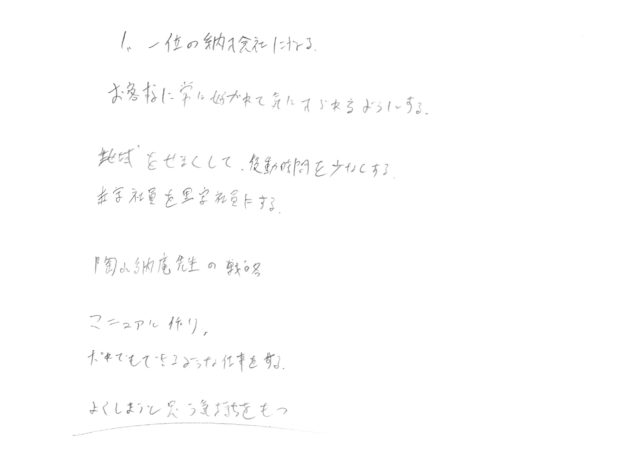 1. 一位の納才会社になる.
お客様に常に好かれて気に入られるようにする.
地域をせまくして、移動時間を少なくする.
赤字社員を黒字社員にする.
先生の戦略
マニュアル作り,
だれでもできるような仕事をする.
よくしようと思う気持ちをもつ